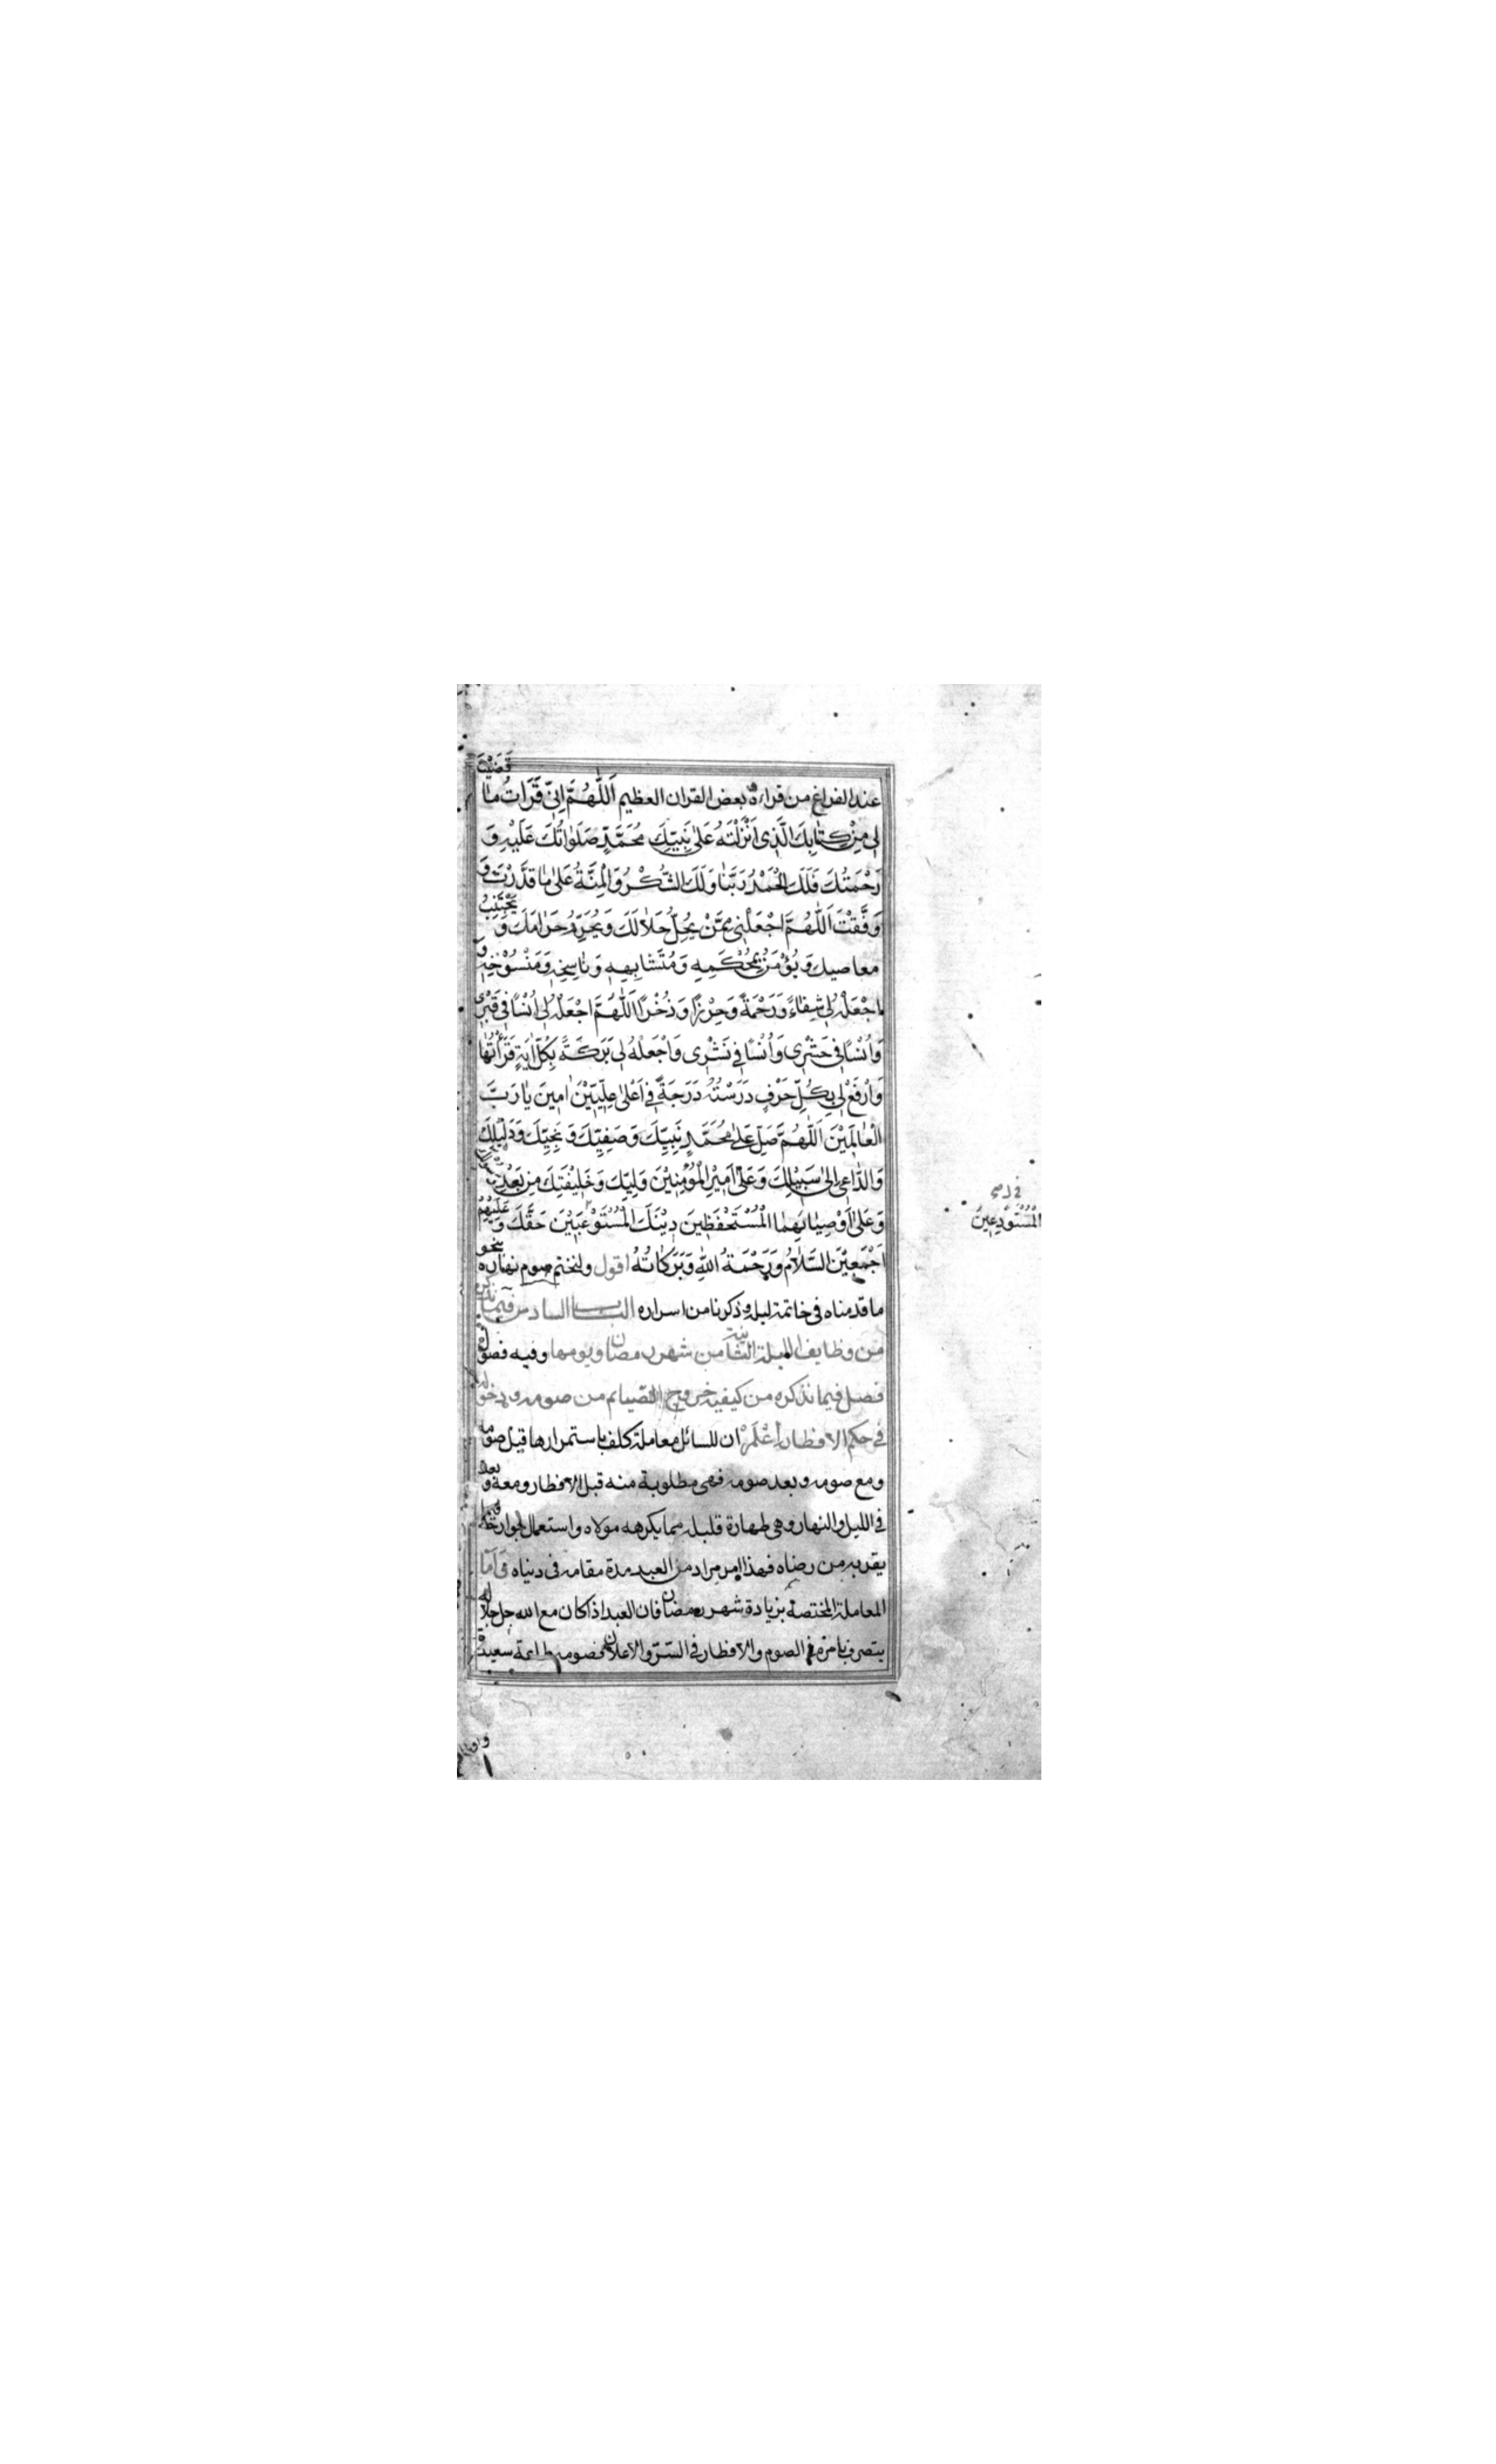 عند الفراغ من قراءة بعض القران العظيم اَللّٰهُمَّ اِنّي قَرَأتُ مٰا قَضَيْتَ
لي مِنْ كِتٰابِكَ الَّذي اَنْزَلْتَهُ عَلىٰ نَبِيِّكَ مُحَمَّدٍ صَلَوٰاتُكَ عَلَيْهِ وَ
رَحْمَتُكَ فَلَكَ الْحَمْدُ رَبَّنٰا وَلَكَ الشُّكْرُ وَالْمِنَّةُ عَلىٰ مٰا قَدَّرْتَ وَ
وَفَّقْتَ اَللّٰهُمَّ اجْعَلْني مِمَّنْ يُحِلُّ حَلاٰلَكَ وَيُحَرِّمُ حَرٰامَكَ وَ يَجْتَنِبُ
معاصيك وَيُؤْمِنُ بِمُحْكَمِهِ وَمُتَشٰابِهِهِ وَنٰاسِخِهِ وَمَنْسُوْخِهِ وَ
اجْعَلْهُ لي شِفٰاءً وَرَحْمَةً وَحِرْزًا وَذُخْرًا اَللّٰهُمَّ اجْعَلْهُ لي اُنْسًا في قَبْري
وَاُنْسًا في حَشْري وَاُنْسًا في نَشْري وَاجْعَلْهُ لي بَرَكَةً بِكُلِّ اٰيَةٍ قَرَأْتُهٰا
وَارْفَعْ لي بِكُلِّ حَرْفٍ دَرَسْتُهُ دَرَجَةً في اَعْلىٰ عِلِّيّيْنَ اٰمينَ يٰا رَبَّ
الْعٰالَمِيْنَ اَللّٰهُمَّ صَلِّ عَلىٰ مُحَمَّدٍ نَبِيِّكَ وَصَفِيِّكَ وَنَجِيِّكَ وَدَلِيْلِكَ
وَالدّٰاعي اِلىٰ سَبِيْلِكَ وَعَلىٰ اَمِيْرِ الْمُؤْمِنِيْنَ وَلِيِّكَ وَخَلِيْفَتِكَ مِنْ بَعْدِ
وَعَلىٰ اَوْصِيٰائِهِمَا الْمُسْتَحْفَظِينَ دِيْنَكَ الْمُسْتَوْعَبِيْنَ حَقَّكَ وَ عَلَيْهِمْ
اَجْمَعِيْنَ السَّلاٰمُ وَرَحْمَةُ اللهِ وَبَرَكٰاتُهُ اقول ولنختم صوم نهاره بنحو
ما قدمناه في خاتمة ليله وذكرنا من اسراره الباب السادس فيما نذكره
من وظايف الليلة الثانية من شهر رمضان ويومها وفيه فصول
فصل فيما نذكره من كيفية خروج الصّيام من صومه ودخوله
في حكم الافطار اِعْلَمْ ان للسائل معاملة كلف باستمرارها قبل صومه
ومع صومه وبعد صومه فهي مطلوبة منه قبل الافطار ومعه وبعده
في الليل والنهار وهي طهارة قلبه مما يكرهه مولاه واستعمال جوارحه فيما
يقربه من رضاه فهذا امر مراد من العبد مدة مقامه في دنياه وَامّا
المعاملة المختصة بزيادة شهر رمضان فان العبد اذا كان مع الله جل جلاله
يتصرف بامره في الصوم والافطار في السّرّ والاعلان فصومه طاعة سعيدة
المُسْتَودِعينَ